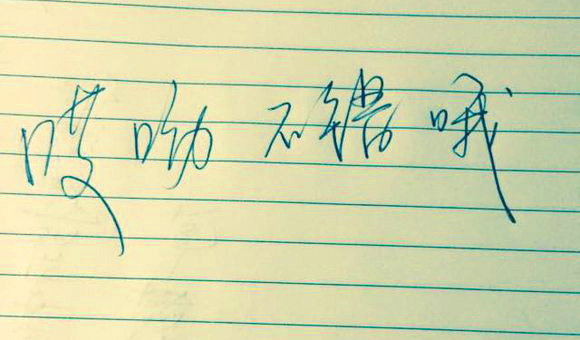 哎呦不错哦